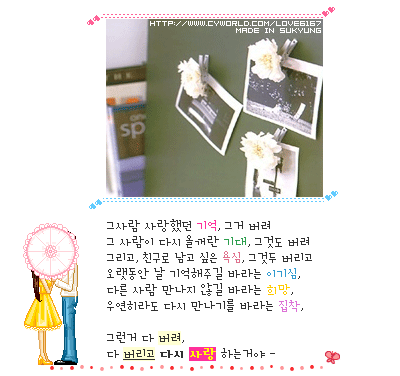 HTTP://WWW.CYWORLD.COM/LOVE6167
MADE IN SUKYUNG
sp
그사람 사랑했던 기억, 그거 버려
그 사람이 다시 올꺼란 기대, 그것도 버려
그리고, 친구로 남고 싶은 욕심, 그것두 버리고
오랫동안 날 기억해주길 바라는 이기심,
다른 사람 만나지 않길 바라는 희망,
우연히라도 다시 만나기를 바라는 집착,
그런거 다 버려,
다 버리고 다시 사랑 하는거야 -